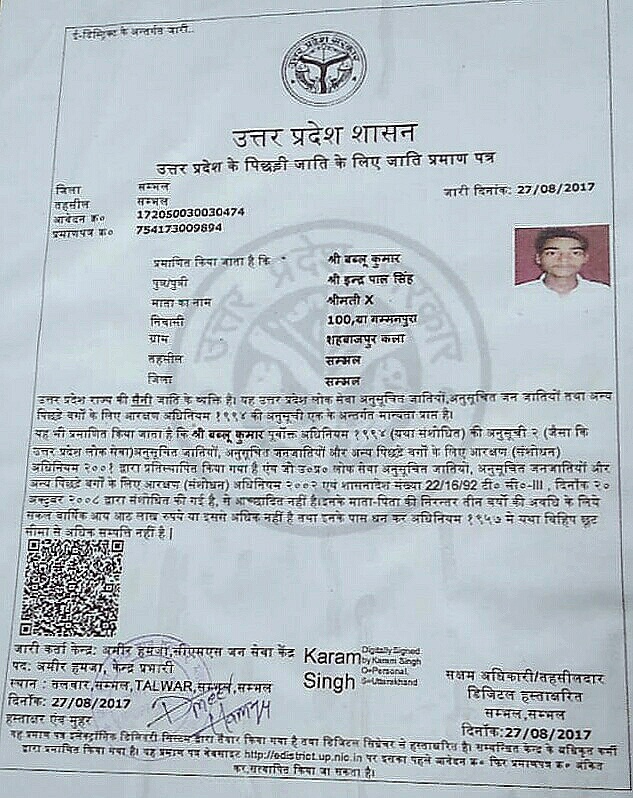 ई-डिस्ट्रिक्ट के अन्तर्गत जारी..
उत्तर प्रदेश सरकार
उत्तर प्रदेश शासन
उत्तर प्रदेश के पिछड़ी जाति के लिए जाति प्रमाण पत्र
जिला सम्भल
जारी दिनांक: 27/08/2017
तहसील सम्भल
आवेदन क्र० 172050030030474
प्रमाणपत्र क्र० 754173009894
प्रमाणित किया जाता है कि श्री बब्लू कुमार
पुत्र/पुत्री श्री इन्द्र पाल सिंह
माता का नाम श्रीमती X
निवासी 100,ग्रा गम्मनपुरा
ग्राम शहबाजपुर कला
तहसील सम्भल
जिला सम्भल
उत्तर प्रदेश राज्य की सैनी जाति के व्यक्ति है। यह उत्तर प्रदेश लोक सेवा अनुसूचित जातियों,अनुसूचित जन जातियों तथा अन्य
पिछड़े वर्गों के लिए आरक्षण अधिनियम १९९४ की अनुसूची एक के अन्तर्गत मान्यता प्राप्त है।
यह भी प्रमाणित किया जाता है कि श्री बब्लू कुमार पूर्वोक्त अधिनियम १९९४ (यथा संशोधित) की अनुसूची २ (जैसा कि
उत्तर प्रदेश लोक सेवा)अनुसूचित जातियों, अनुसूचित जनजातियों और अन्य पिछड़े वर्गों के लिए आरक्षण (संशोधन)
अधिनियम २००१ द्वारा प्रतिस्थापित किया गया है एंव जो उ०प्र० लोक सेवा अनुसूचित जातियों, अनुसूचित जनजातियों और
अन्य पिछड़े वर्गों के लिए आरक्षण (संशोधन) अधिनियम २००२ एंव शासनादेश संख्या 22/16/92 टी० सी०-III, दिनांक २०
अक्टूबर २००८ द्वारा संशोधित की गई है, से आच्छादित नहीं है।इनके माता-पिता की निरन्तर तीन वर्षो की अवधि के लिये
सकल वार्षिक आय आठ लाख रुपये या इससे अधिक नहीं है तथा इनके पास धन कर अधिनियम १९५७ में यथा विहित छूट
सीमा से अधिक सम्पत्ति नहीं है |
जारी कर्ता केन्द्र: अमीर हमजा,सीएसएस जन सेवा केंद्र
पद: अमीर हमजा, केन्द्र प्रभारी
स्थान : तलवार,सम्भल,TALWAR,सम्भल,सम्भल
दिनांक: 27/08/2017
हस्ताक्षर एंव मुहर
Karam Singh
Digitally Signed
by Karam Singh
O=Personal,
S=Uttarakhand
सक्षम अधिकारी/तहसीलदार
डिजिटल हस्ताक्षरित
सम्भल,सम्भल
दिनांक:27/08/2017
यह प्रमाण पत्र इलेक्ट्रॉनिक डिलिवरी सिस्टम द्वारा तैयार किया गया है तथा डिजिटल सिग्नेचर से हस्ताक्षरित है। सम्बन्धित केन्द्र के अधिकृत कर्मी
द्वारा प्रमाणित किया गया है। यह प्रमाण पत्र वेबसाइट http://edistrict.up.nic.in पर इसका पहले आवेदन क्र० फिर प्रमाणपत्र क्र० अंकित
कर,सत्यापित किया जा सकता है।